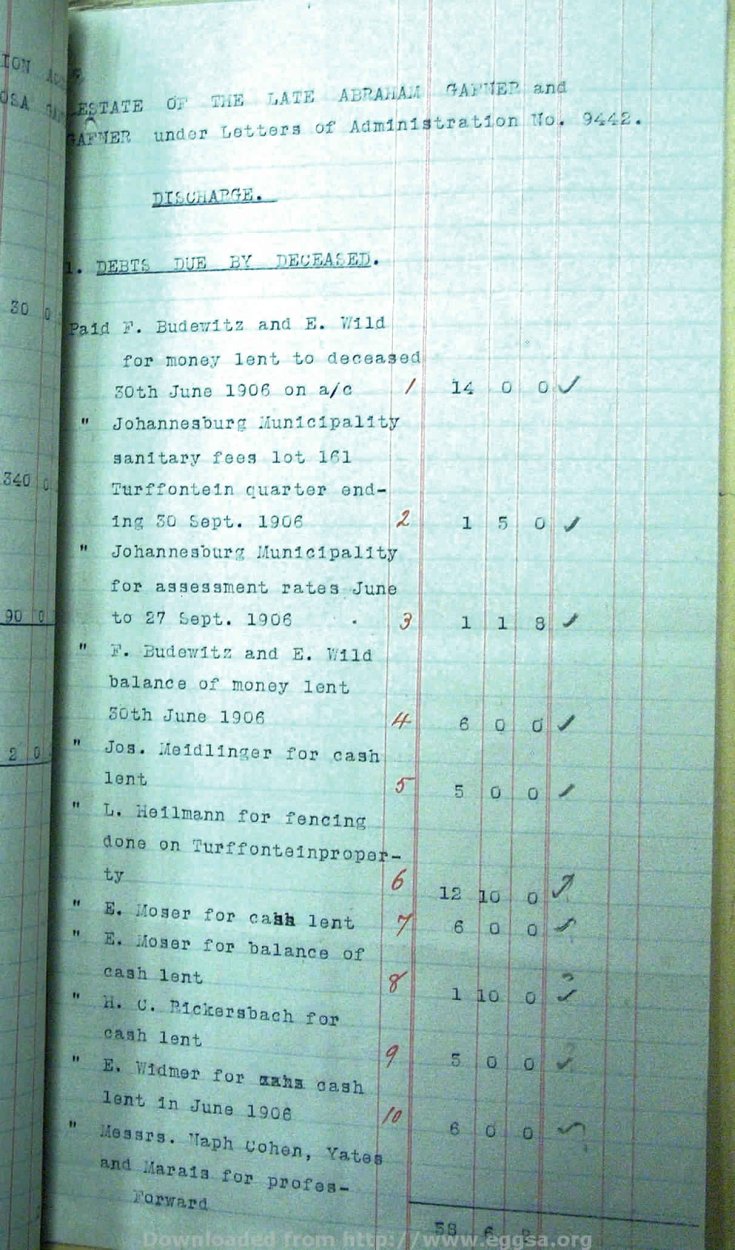 ION
OSA
ESTATE OF THE LATE ABRAHAM GAFNER and
GAFNER under Letters of Administration No. 9442.
DISCHARGE.
1. DEBTS DUE BY DECEASED.
30 0
Paid F. Budewitz and E. Wild
for money lent to deceased
30th June 1906 on a/c 1 14 0 0 ✓
" Johannesburg Municipality
sanitary fees lot 161
340 0
Turffontein quarter end-
ing 30 Sept. 1906 2 1 5 0 ✓
" Johannesburg Municipality
for assessment rates June
90 0
to 27 Sept. 1906 . 3 1 1 8 ✓
" F. Budewitz and E. Wild
balance of money lent
30th June 1906 4 6 0 0 ✓
2 0
" Jos. Meidlinger for cash
lent 5 5 0 0 ✓
" L. Heilmann for fencing
done on Turffonteinproper-
ty 6 12 10 0 ✓
" E. Moser for cash lent 7 6 0 0 ✓
" E. Moser for balance of
cash lent 8 1 10 0 ✓
" H. C. Rickersbach for
cash lent 9 5 0 0 ✓
" E. Widmer for cash
lent in June 1906 10 6 0 0 ✓
" Messrs. Naph Cohen, Yates
and Marais for profes-
Forward
58 6 8
Downloaded from http://www.eggsa.org